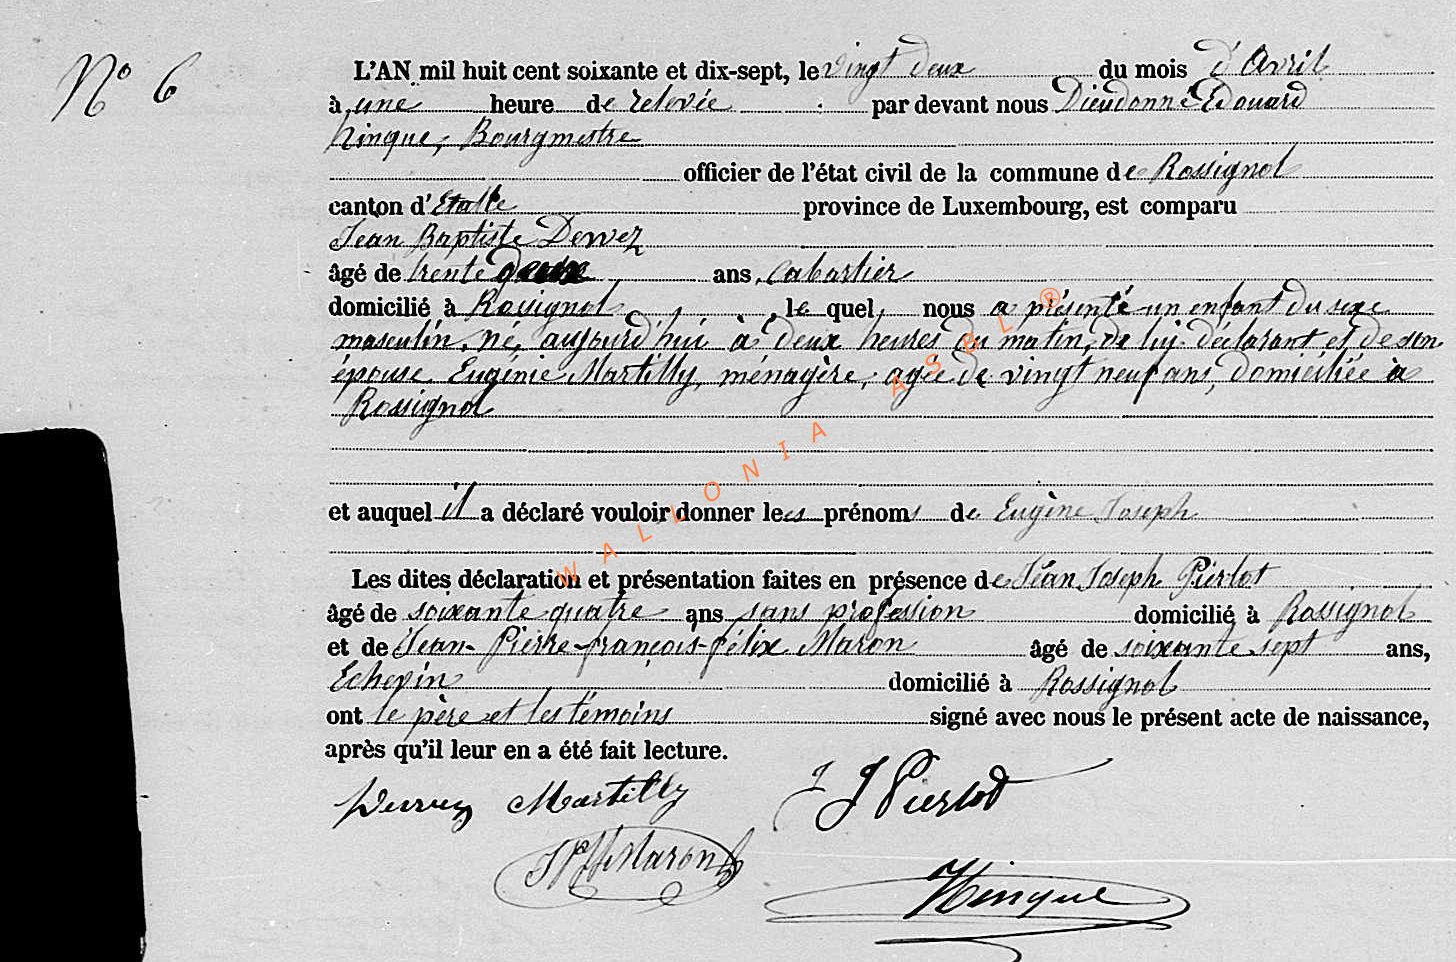 N° 6
L'AN mil huit cent soixante et dix-sept, le vingt deux du mois d'Avril
à une heure de relevée par devant nous Dieudonné Edouard
hinque, Bourgmestre
officier de l'état civil de la commune de Rossignol
canton d'Etalle province de Luxembourg, est comparu
Jean Baptiste Dewez
âgé de trente deux ans, cabartier
domicilié à Rossignol, le quel nous a présenté un enfant du sexe
masculin, né, aujourd'hui à deux heures du matin, de lui déclarant et de son
épouse Eugénie Martilly, ménagère, agée de vingt neuf ans, domiciliée à
Rossignol
et auquel il a déclaré vouloir donner les prénoms de Eugène Joseph
Les dites déclaration et présentation faites en présence de Jéan Joseph Pierlot
âgé de soixante quatre ans sans profession domicilié à Rossignol
et de Jean-Pierre-françois-félix Maron âgé de soixante sept ans,
Echevin domicilié à Rossignol
ont le père et les témoins signé avec nous le présent acte de naissance,
après qu'il leur en a été fait lecture.
Dewez Martilly J J Pierlot
Maron
Hinque
WALLONIA ASBL ®